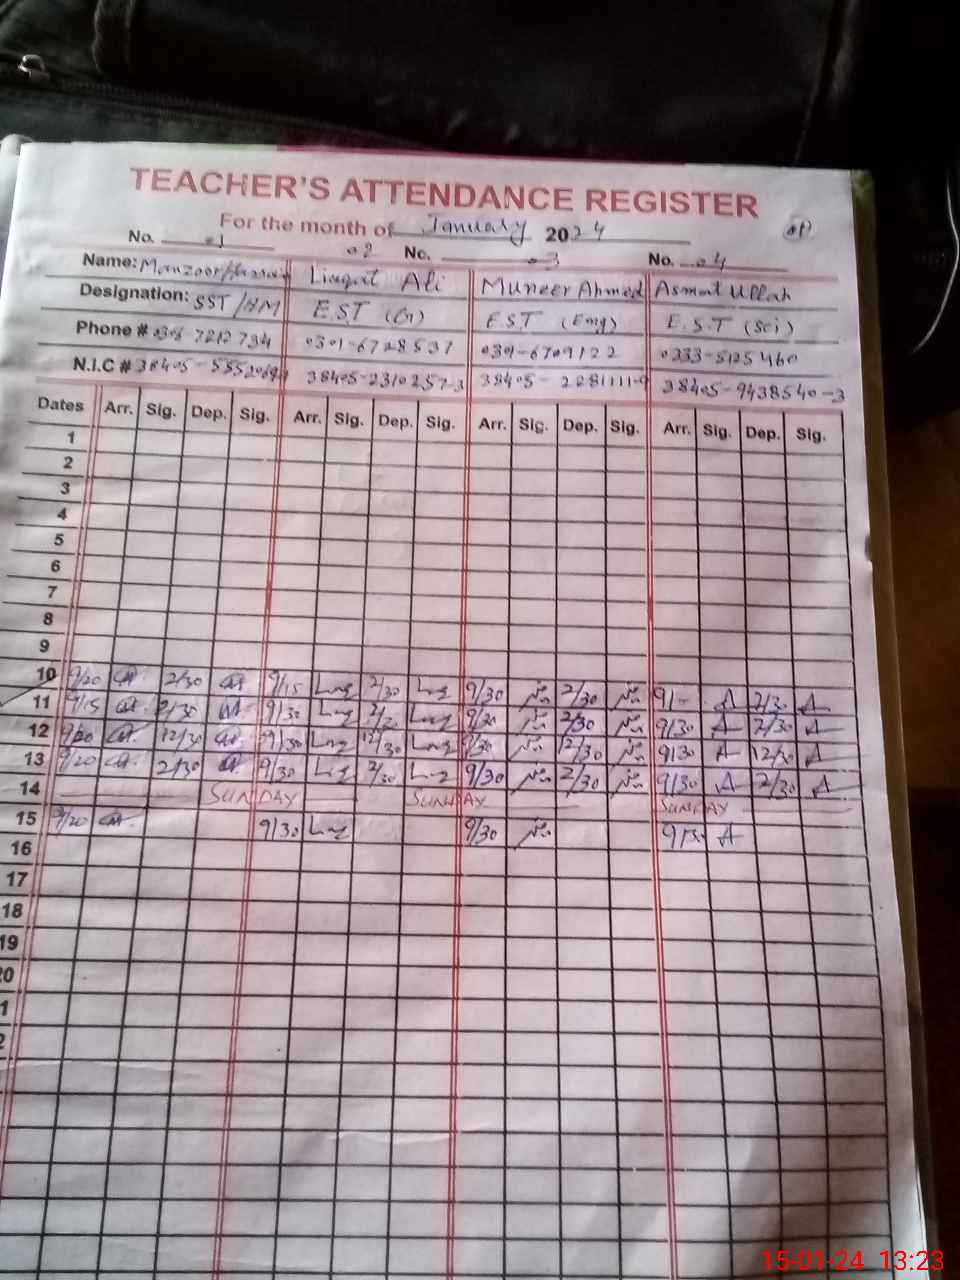 TEACHER'S ATTENDANCE REGISTER
For the month of January 2024
No. 01 02 No. 03 No. 04
Name: Manzoor Hassan Liaqat Ali Muneer Ahmed Asmat Ullah
Designation: SST/HM E.S.T (G) E.S.T (Eng) E.S.T (Sci)
Phone # 0306-7212734 0301-6728537 0301-6709122 0333-5125460
N.I.C # 38405- 38405-2310257-3 38405-2281111-9 38405-9438540-3
Dates Arr. Sig. Dep. Sig. Arr. Sig. Dep. Sig. Arr. Sig. Dep. Sig. Arr. Sig. Dep. Sig.
1
2
3
4
5
6
7
8
9
10 9/20 2/30 9/15 2/30 9/30 2/30 9/- A 2/30 A
11 9/15 2/30 9/30 2/30 9/30 2/30 9/30 A 2/30 A
12 9/20 12/30 9/30 12/30 9/30 12/30 9/30 A 12/30 A
13 9/20 2/30 9/30 2/30 9/30 2/30 9/30 A 2/30 A
14 SUNDAY SUNDAY SUNDAY
15 9/20 9/30 9/30 9/30 A
16
17
18
19
20
1
2
15-01-24 13:23